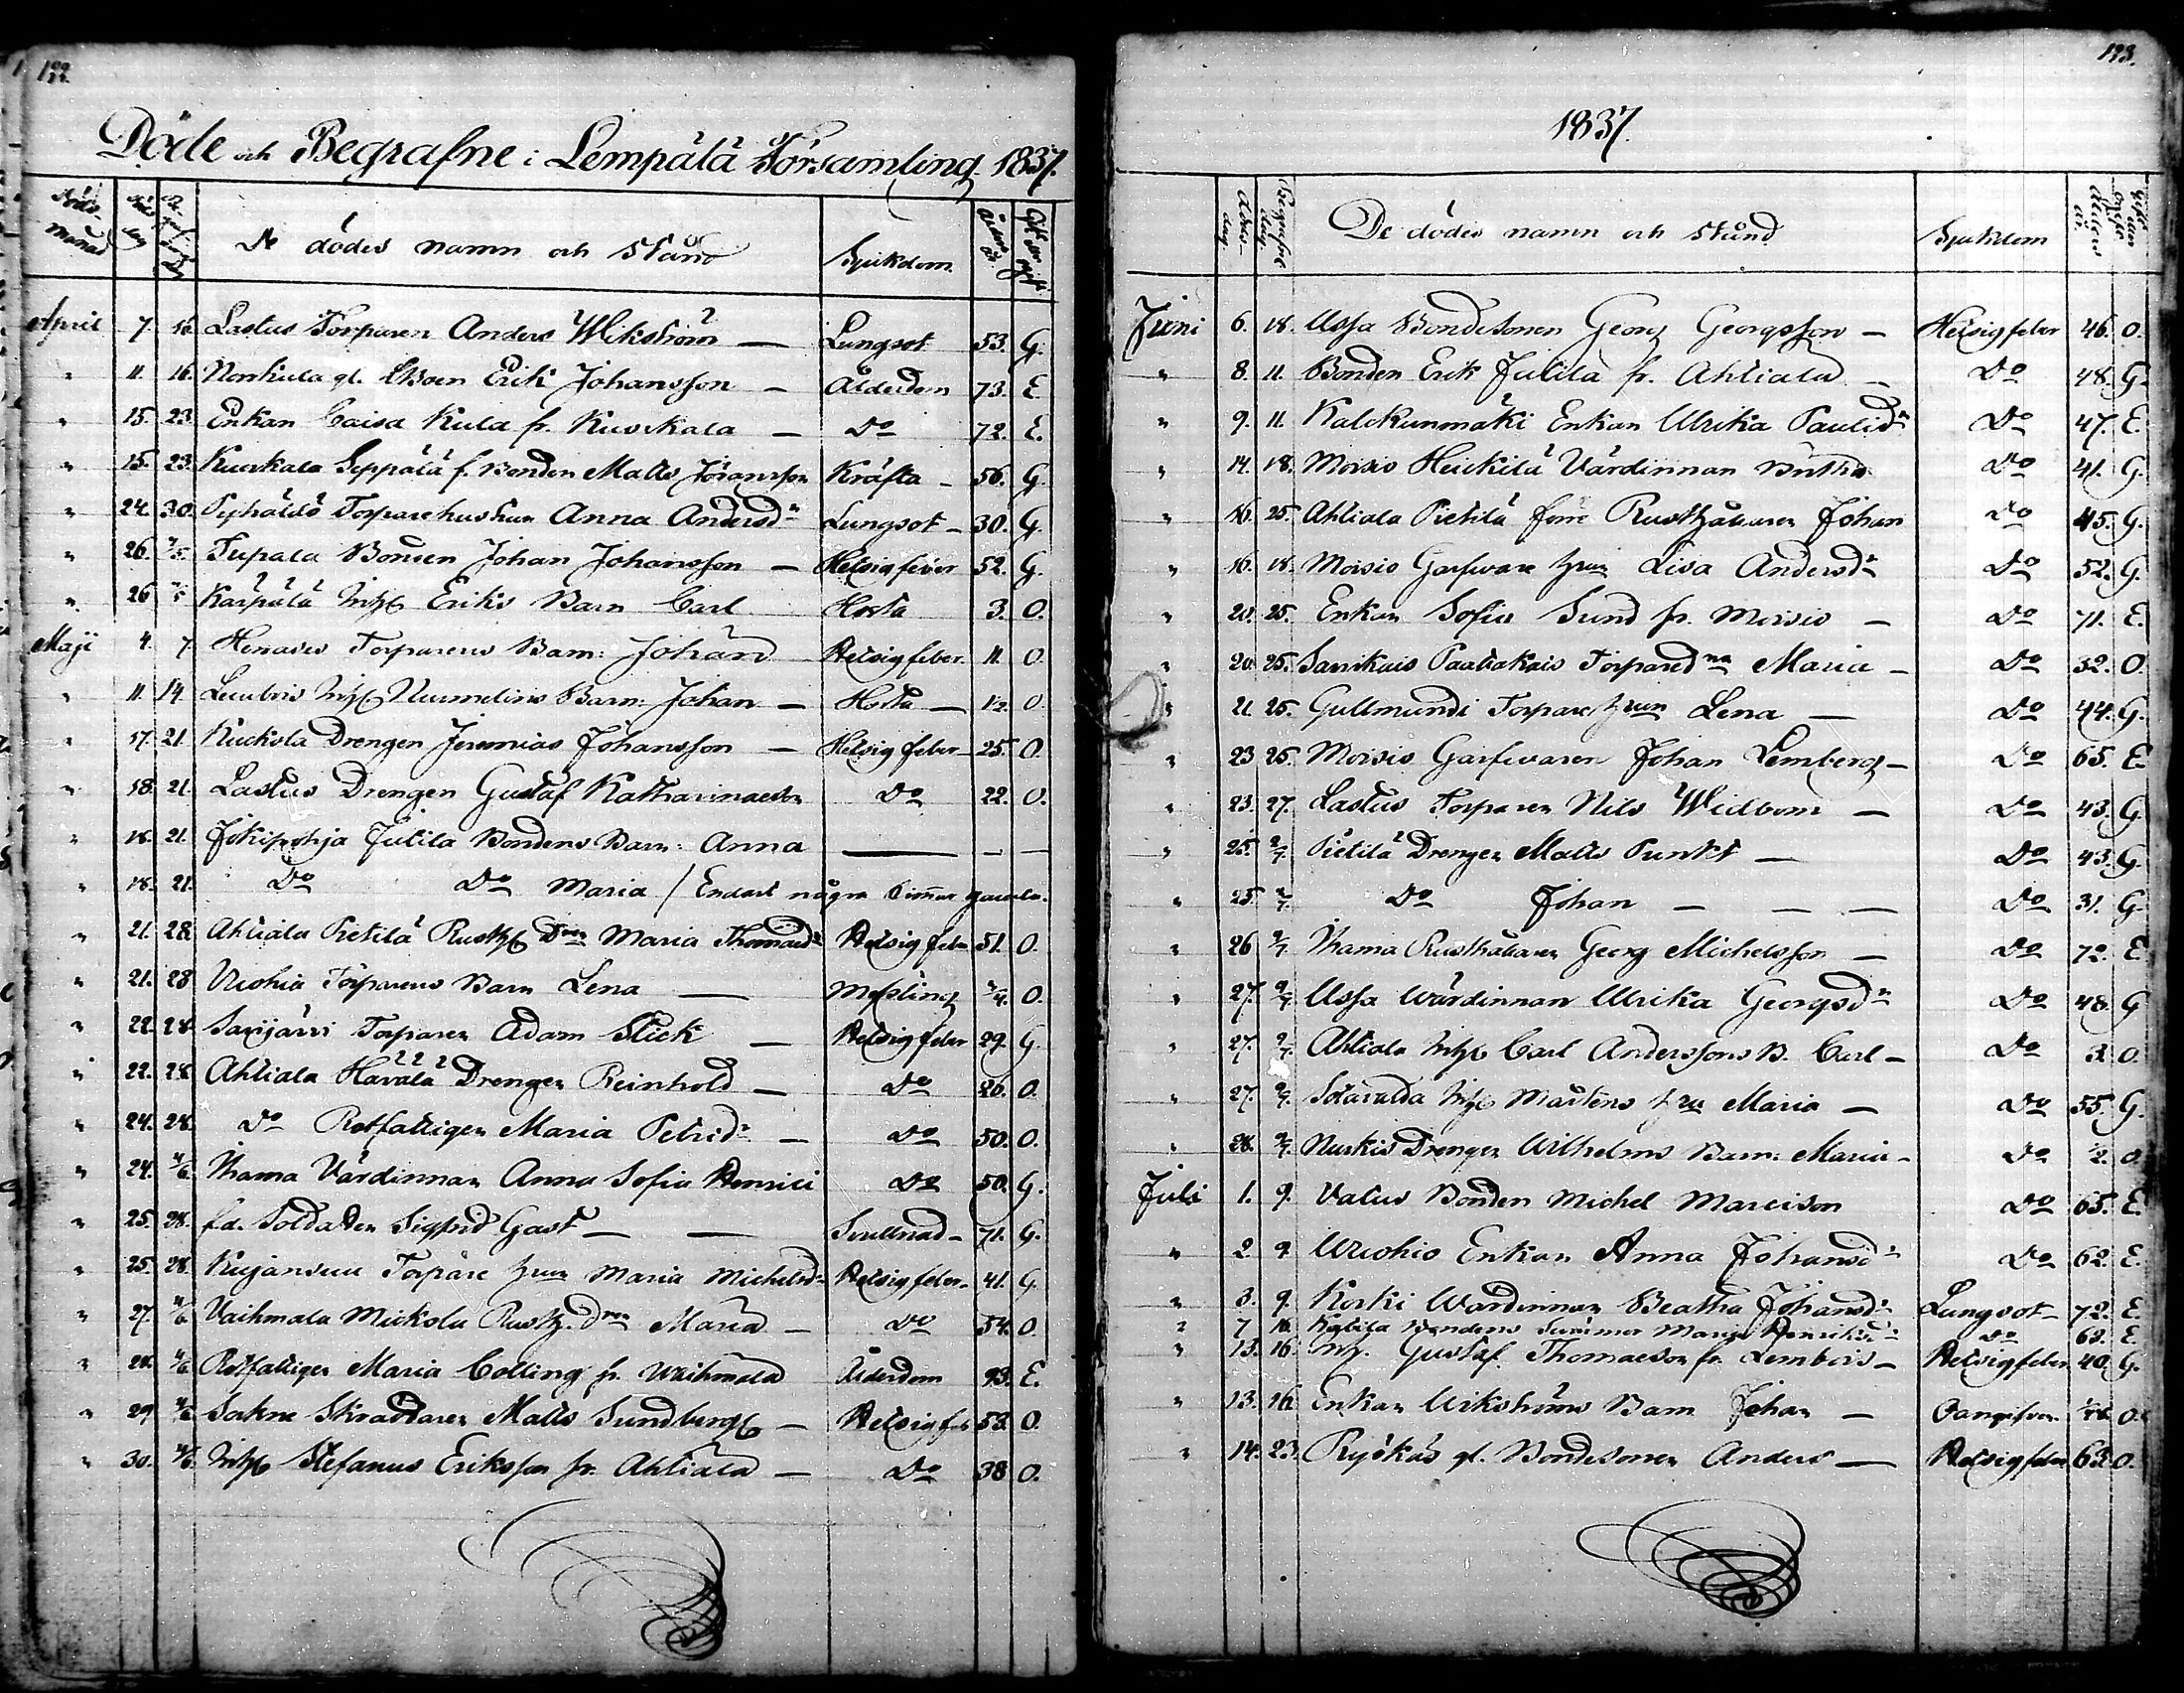 122.
Döde och Begrafne i Lempälä Församling 1837.
Döds-månad Döds dag De dödes namn och Stånd Sjukdom Ålders år Gift eller ogift
April 7. 16. Lastus Torparen Anders Wikström — Lungsot 53. G.
" 11. 16. gl. Erik Johansson — Ålderdom 73. E.
" 15. 23. Enkan Caisa Kula fr. Kuorkala — Do 72. E.
" 15. 23. Kuorkala Seppälä f. Bonden Matts Johansson Kräfta — 56. G.
" 24. 30. Torparehustrun Anna Andersdr Lungsot — 30. G.
" 26. 7/5 Tupala Bonden Johan Johansson — Hetsig feber 52. G.
" 26 7/5 Karpälä Inhs Eriks Barn Carl Hosta 3. O.
Maji 4. 7. Henases Torparens Barn: Johan Hetsig feber. 11. O.
" 11. 14. Lembois Inhs Numelins Barn: Johan — Hosta — 1/2. O.
" 17. 21. Kuokola Drengen Jeremias Johansson — Hetsig feber — 25. O.
" 18. 21. Lastus Drengen Gustaf Katharinaeson Do 22. O.
" 18. 21. Jokipohja Jutila Bondens Barn: Anna — — —
" 18. 21. Do Do Maria / Endast några timmar gamla.
" 21. 28. Ahtiala Pietilä Rusth Dren Maria Thomaedr Hetsig feber 51. O.
" 21. 28 Torparens Barn Lena — Messling 3/4. O.
" 22. 28. Sarijärvi Torparen Adam Slick — Hetsig feber 29. G.
" 22. 28. Ahtiala Hävälä Drengen Reinhold — Do 20. O.
" 24. 28. Do Rotfattigen Maria Petridr — Do 50. O.
" 24. 4/6. Värdinnan Anna Sofia Henrici Do 50. G.
" 25. 28. f.d. Soldaten Sigfrid Gast — — Svullnad — 71. G.
" 25. 28. Kujansuu Torpare hrun Maria Michelsdr Hetsig feber. 41. G.
" 27. 4/6 Vaihmala Mickola Rusth. Dren Maria — Do 54. O.
" 28. 4/6 Rotfattigen Maria Colling fr. Waihmala Ålderdom 93. E.
" 29 4/6 Sockne Skräddaren Matts Sundberg — Hetsig feb 53. O.
" 30. 4/6. Inhs Stefanus Eriksson fr. Ahtiala — Do 38 O.
123.
1837.
Döds-dag Begrafne dag De dödes namn och Stånd Sjukdom Ålders år Gift eller ogift
Juni 6. 18. Ussa Bondesonen Georg Georgsson — Hetsig feber 46. O.
" 8. 11. Bonden Erik Jutila fr. Ahtiala — Do 48. G.
" 9. 11. Kalckunmäki Enkan Ulrika Paulidr Do 47. E.
" 14. 18. Moisio Heickilä Värdinnan Do 41. G.
" 16. 25. Ahtiala Pietilä förre Rusthållaren Johan Do 45. G.
" 16. 18. Moisio Garfvare hrun Lisa Andersdr Do 52. G.
" 20. 25. Enkan Sofia Sund fr. Moisio — Do 71. E.
" 20. 25. Savikais Paaliakais Torparedren Maria — Do 32. O.
" 21 25. Gullmundi Torpare hrun Lena — Do 44. G.
" 23 25. Moisio Garfwaren Johan Lemberg — Do 65. E.
" 23. 27. Lastus Torparen Nils Widbom — Do 43. G.
" 25. 2/7. Pietilä Drengen Matts Punkt — Do 43. G.
" 25 2/7. Do Johan — — — Do 31. G.
" 26 2/7. Rusthållaren Georg Michelsson — Do 72. E
" 27. 2/7. Ussa Wärdinnan Ulrika Georgsdr Do 48. G
" 27. 2/7. Ahtiala Inhs Carl Anderssons B. Carl — Do 3. O.
" 27. 2/7. Sotavalda Inhs Mårtens hru Maria — Do 55. G.
" 28. 2/7. Nurkis Drengen Wilhelms Barn: Maria — Do 1/2. O.
Juli 1. 9. Valus Bonden Michel Marcison Do 65. E.
" 2. 9. Enkan Anna Johansdr Do 62. E.
" 3. 9. Korki Wärdinnan Beatha Johansdr Lungsot — 72. E.
" 7 16. Bondens Maria Henriksdr Do 62. E
" 13. 16. Inh. Gustaf Thomaeson fr Lembois — Hetsig feber 40. G.
" 13. 16. Enkan Wikströms Barn Johan — O.
" 14. 23. Ryökäs gl. Bondesonen Anders — Hetsig feber 63. O.